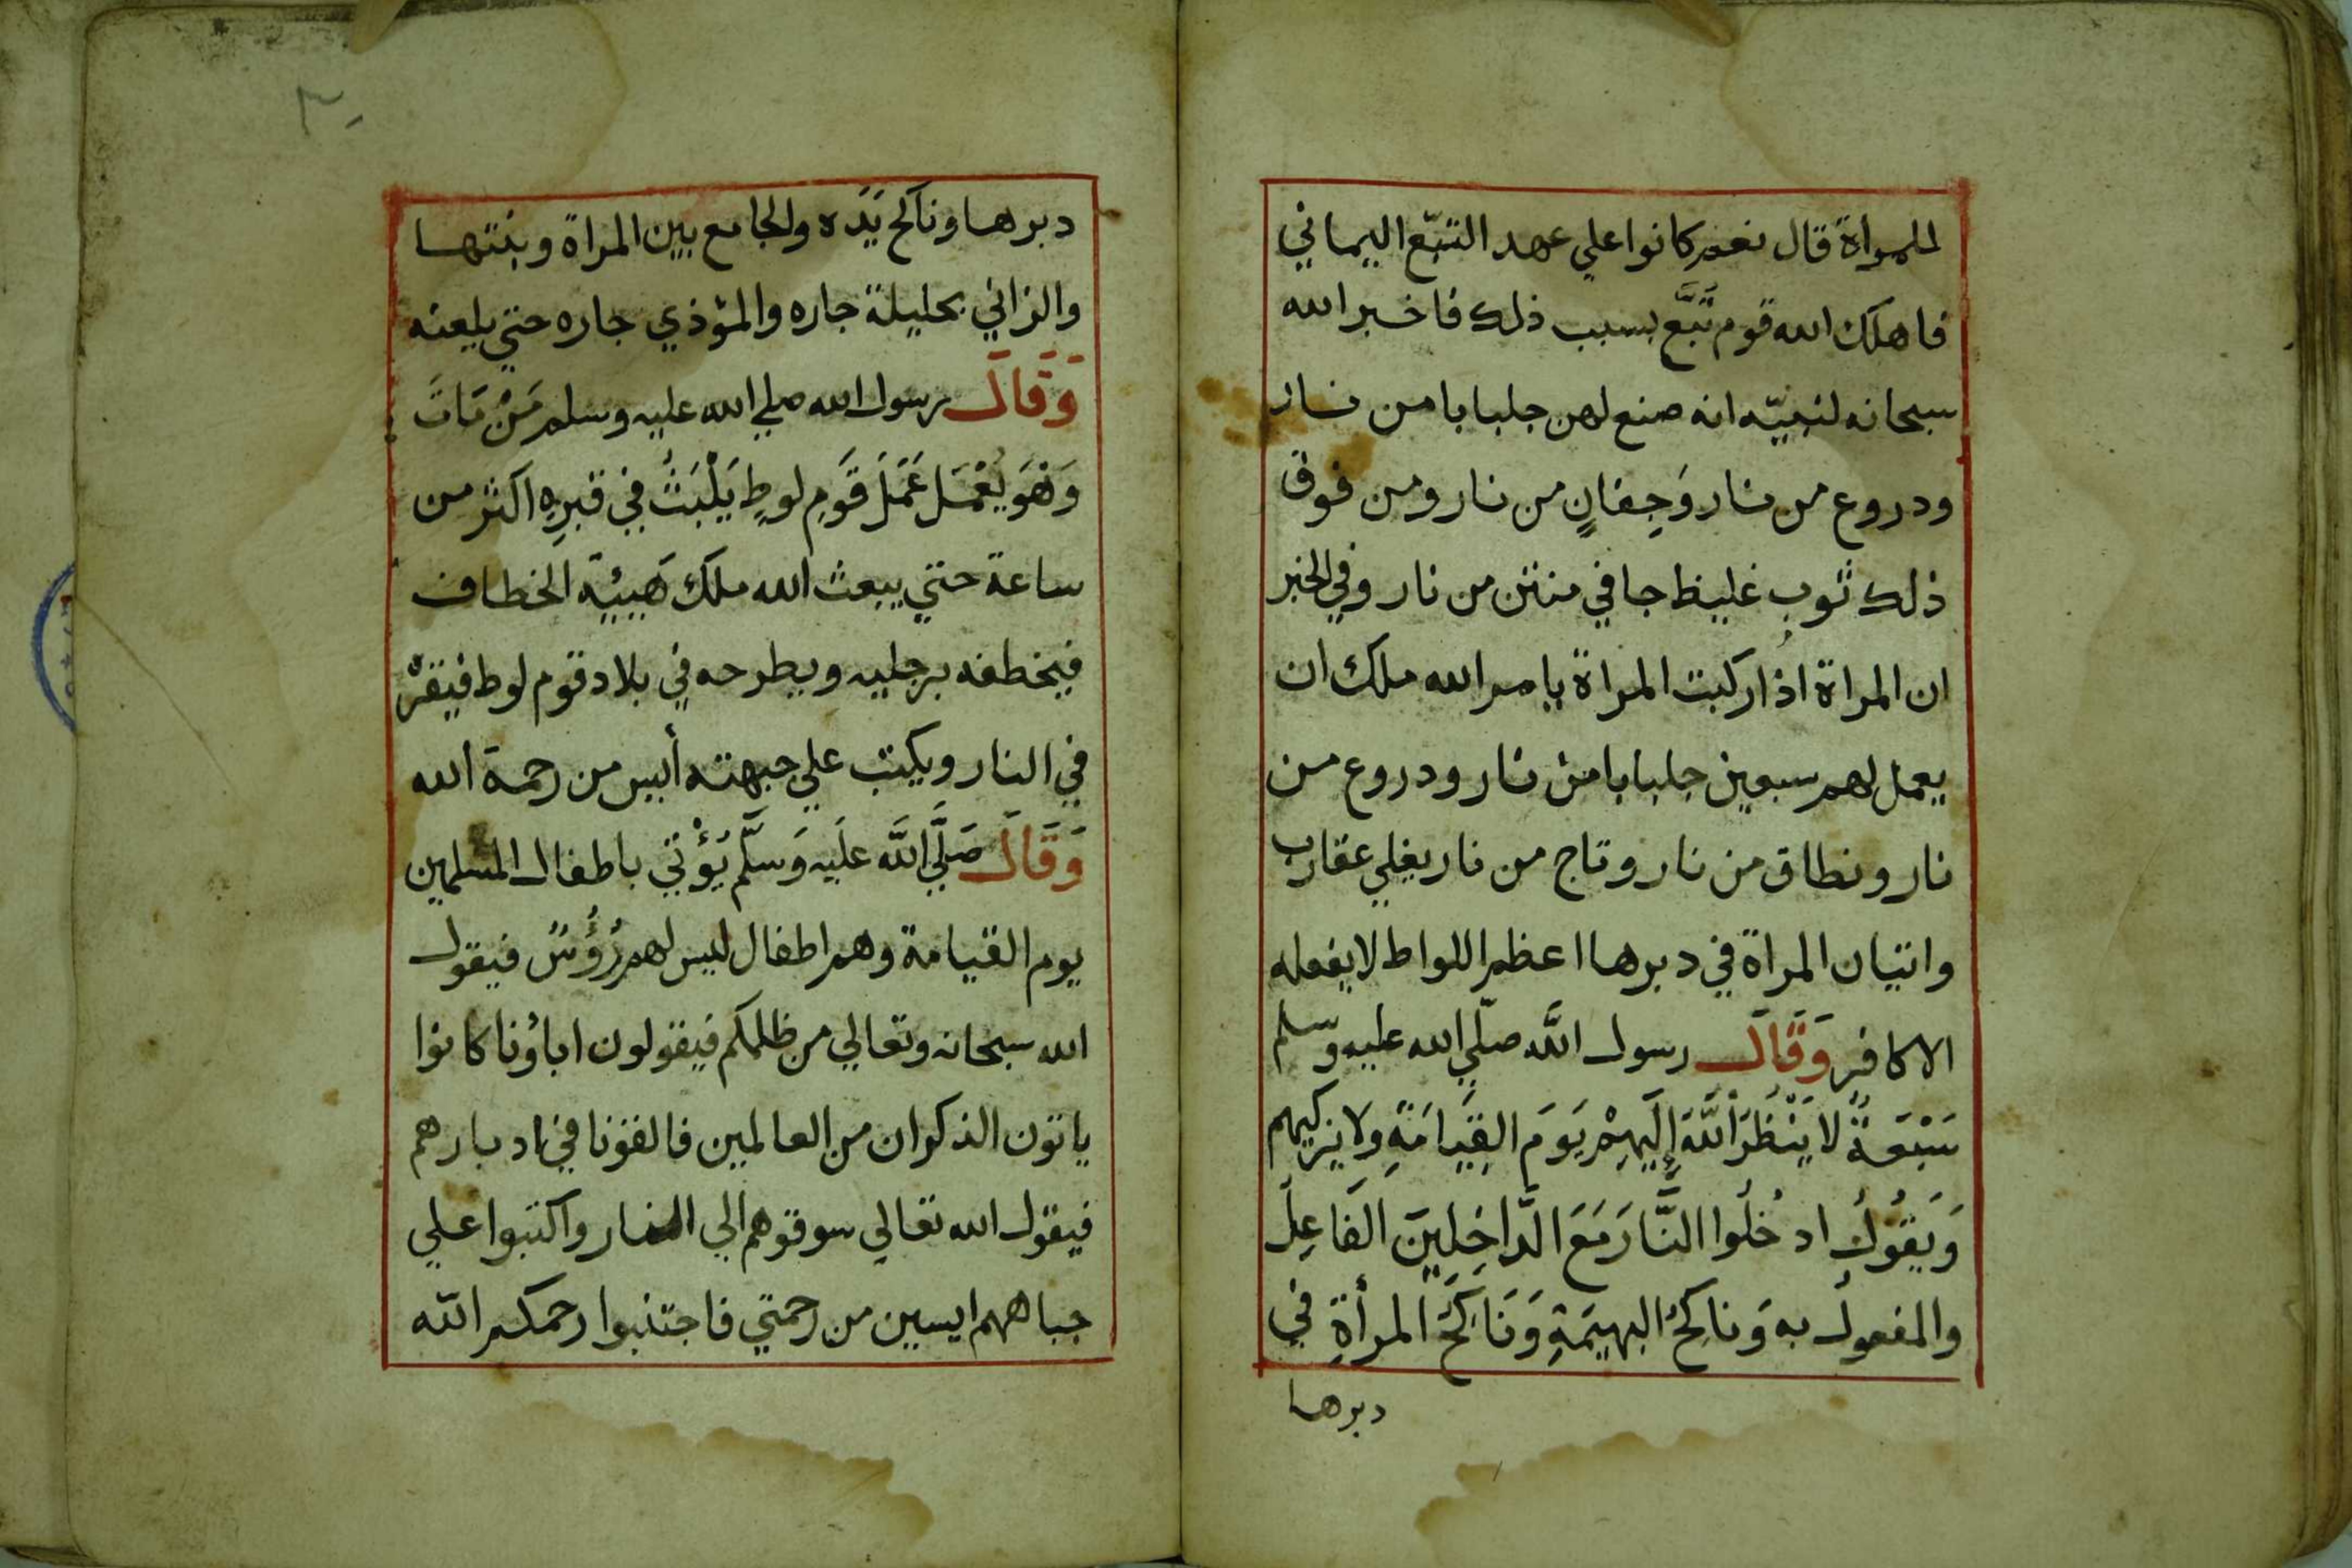 للمرأة قال نعم كانوا علي عهد التبّع اليماني
فاهلك الله قوم تُبَّع بسبب ذلك فاخبر الله
سبحانه لنبيّه انه صنع لهن جلبابا من نار
ودروع من نار وَجِفانٍ من نار ومن فوق
ذلك ثوب غليظ جافي منتن من نار وفي الخبر
ان المراة اذا ركبت المراة يامر الله ملك ان
يعمل لهم سبعين جلبابا من نار ودروع من
نار ونطاق من نار وتاج من نار يغلي عقارب
واتيان المراة في دبرها اعظم اللواط لا يفعله
الا كافر وَقَالَ رسول اللَّه صلّي الله عليه وسلم
سَبْعَةٌ لا يَنْظُرُ اللَّهُ إِلَيْهِمْ يَومَ القِيَامَةِ ولا يزكيهم
وَيَقُولُ ادخُلُوا النَّارَ مَعَ الدَّاخِلِينَ الفَاعِلُ
والمفعولُ به وَناكِحُ البهيمَةِ وَنَاكِحُ المرأةِ في
دبرها
٣٠
دبرها وناكح يَدَه والجامع بين المراة وبنتها
والزاني بحليلة جاره والمؤذي جاره حتي يلعنه
وَقَالَ رسول الله صلي الله عليه وسلم مَنْ مَاتَ
وَهُوَ يَعْمَل عَمَلَ قَومِ لوطٍ يَلْبَثُ في قبرِهِ اكثر من
ساعة حتي يبعث الله ملك هَيئةِ الخطاف
فيخطفه برجليه ويطرحه في بلاد قوم لوط فيقرّه
في النار ويكتب علي جبهته أيس من رحمة الله
وَقَالَ صَلَّي اللَّه عليه وَسَلَّم يُؤْتي باطفال المسلمين
يوم القيامة وهم اطفال ليس لهم رُؤُسٌ فيقول
الله سبحانه وتعالي من ظلمكم فيقولون اباؤنا كانوا
ياتون الذكران من العالمين فالقونا في ادبارهم
فيقول الله تعالي سوقوهم الي النار واكتبوا علي
جباههم ايسين من رحمتي فاجتنبوا رحمكم الله